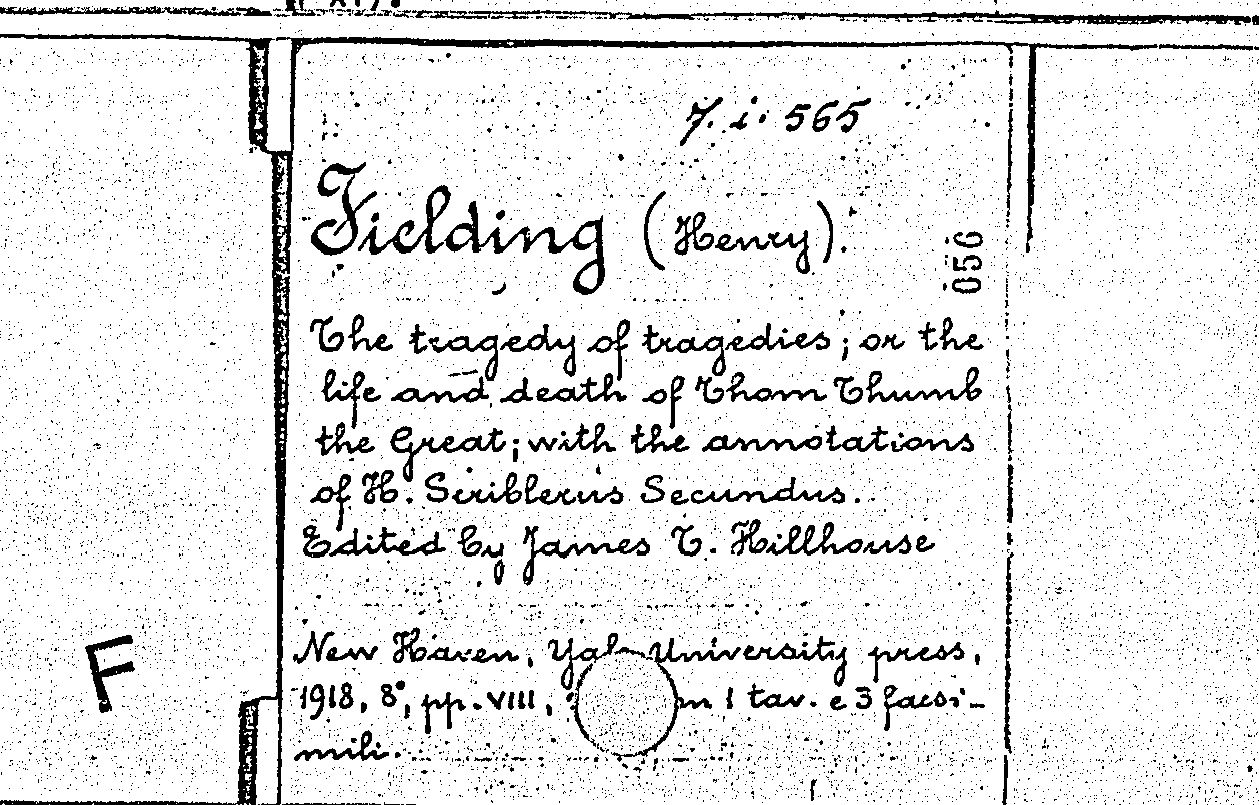 7. i. 565
Fielding (Henry).
056
The tragedy of tragedies; or the
life and death of Thom Thumb
the Great; with the annotations
of H. Scriblerus Secundus.
Edited by James T. Hillhouse
New Haven, Yale University press,
1918, 8°, pp. VIII, 1 tav. e 3 facsi-
mili.
F